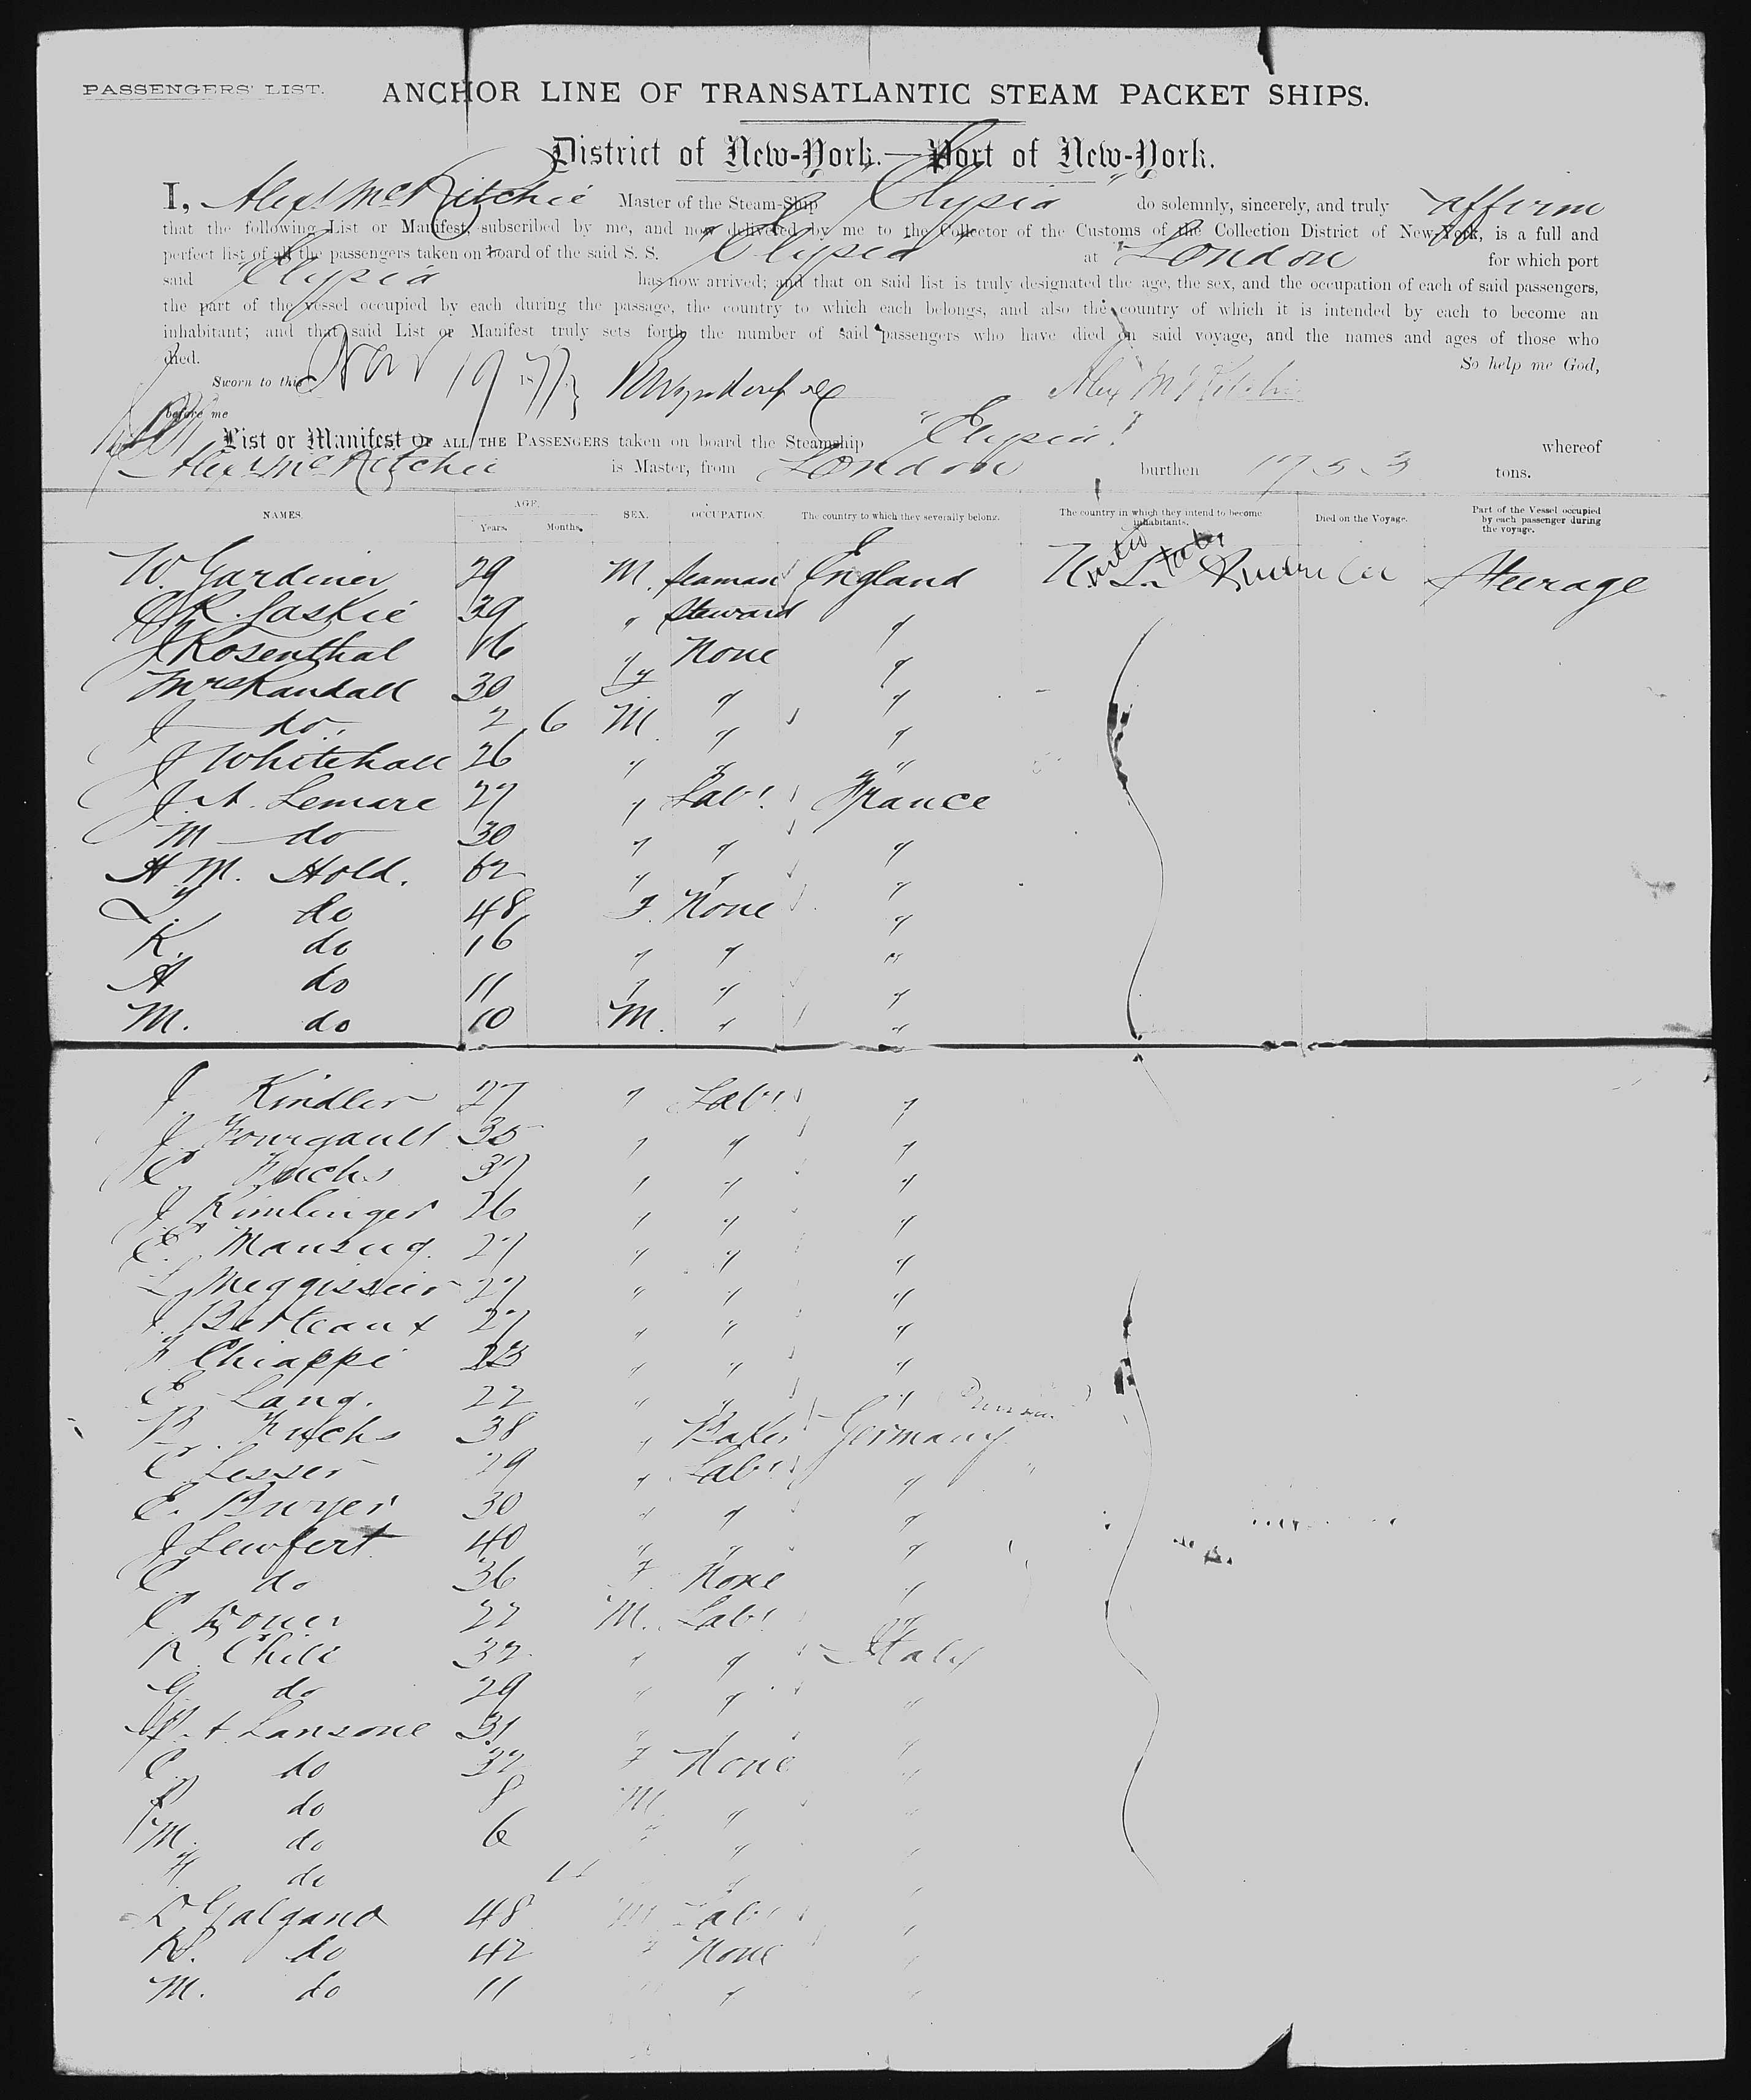 PASSENGERS' LIST.
ANCHOR LINE OF TRANSATLANTIC STEAM PACKET SHIPS.
District of New-York.—Port of New-York.
I, Alexr McRitchie Master of the Steam-Ship Elysia do solemnly, sincerely, and truly affirm
that the following List or Manifest, subscribed by me, and now delivered by me to the Collector of the Customs of the Collection District of New-York, is a full and
perfect list of all the passengers taken on board of the said S. S. "Elysia" at London for which port
said "Elysia has now arrived; and that on said list is truly designated the age, the sex, and the occupation of each of said passengers,
the part of the vessel occupied by each during the passage, the country to which each belongs, and also the country of which it is intended by each to become an
inhabitant; and that said List or Manifest truly sets forth the number of said passengers who have died on said voyage, and the names and ages of those who
died. So help me God,
Sworn to this Nov 19 1877 Alex McRitchie
before me
List or Manifest OF ALL THE PASSENGERS taken on board the Steamship "Elysia" whereof
Alexr McRitchie is Master, from London burthen 1733 tons.
NAMES. AGE. Years. Months. SEX. OCCUPATION. The country to which they severally belong. The country in which they intend to become inhabitants. Died on the Voyage. Part of the Vessel occupied by each passenger during the voyage.
W. Gardiner 29 M. Seaman England United States America Steerage
R. Laskie 39 " Steward "
J Rosenthal 16 " None "
Mrs Randall 30 F " "
J do. 2 6 M " "
J Whitehall 26 " " "
J. A. Lemare 27 " Labr. France
M do 30 " " "
H M. Hold. 62 " " "
L. do 48 F. None "
K. do 16 " " "
A do 11 " " "
M. do 10 M. " "
J Kindler 27 " Labr "
J Fourgault 35 " " "
C Fuchs 37 " " "
J Rimlinger 26 " " "
E. Mansuy. 27 " " "
L Meggissier 27 " " "
J. Berteaux 27 " " "
F Chiappe 23 " " "
E Lang. 22 " " "
B. Fuchs 38 " Baker Germany
C Lesser 29 " Labr "
E. Buryer 30 " " "
J Lewfert 40 " " "
C do 36 F None "
C 22 M. Labr "
R Chili 32 " " Italy
G do 29 " " "
A Lansone 31 " " "
C. do 32 F None "
P do 8 M " "
M. do 6 " " "
H do 11 " "
Galgano 48 M Labr "
R. do 42 F None "
M. do 11 " "